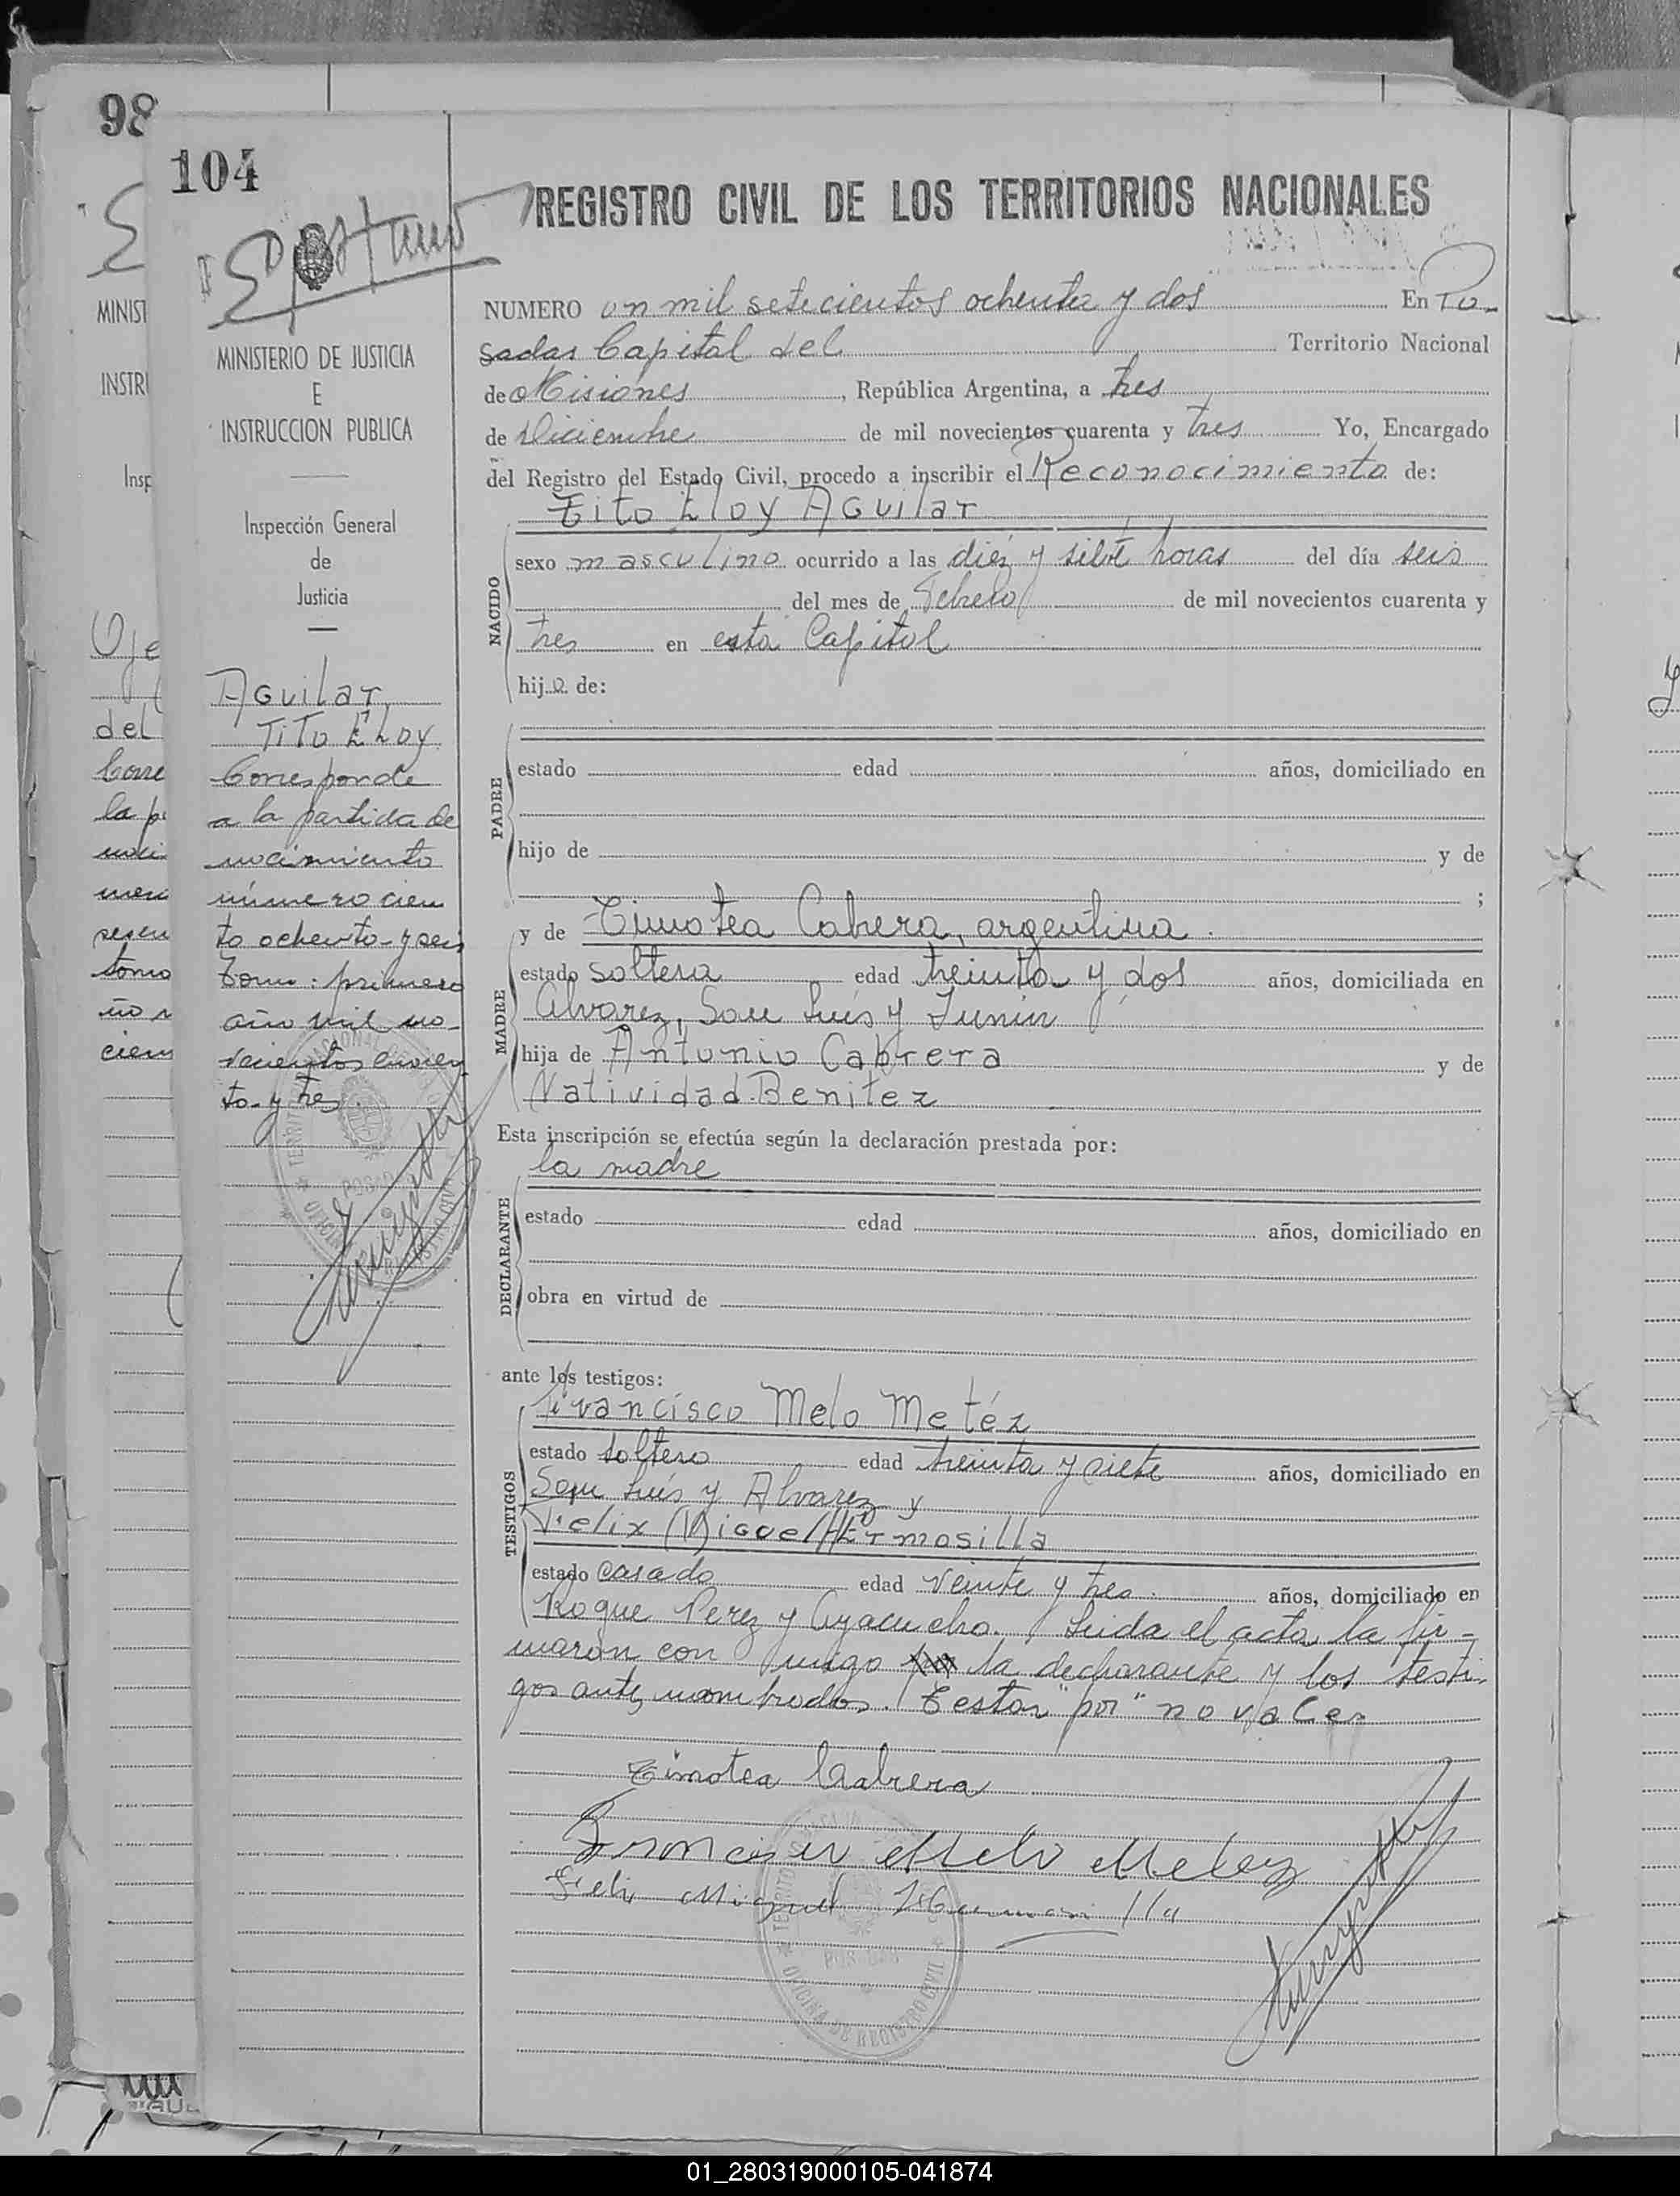 98
104
REGISTRO CIVIL DE LOS TERRITORIOS NACIONALES
NUMERO un mil setecientos ochenta y dos En Po-
sadas Capital del Territorio Nacional
de Misiones, República Argentina, a tres
de Diciembre de mil novecientos cuarenta y tres Yo, Encargado
del Registro del Estado Civil, procedo a inscribir el Reconocimiento de:
Tito Eloy Aguilar
NACIDO
sexo masculino ocurrido a las diez y siete horas del día seis
del mes de Febrero de mil novecientos cuarenta y
tres en esta Capital
hijo de:
PADRE
estado edad años, domiciliado en
hijo de y de
;
y de Timotea Cabrera, argentina.
MADRE
estado soltera edad treinta y dos años, domiciliada en
Alvarez, San Luis y Junin
hija de Antonio Cabrera y de
Natividad Benitez
Esta inscripción se efectúa según la declaración prestada por:
la madre
DECLARANTE
estado edad años, domiciliado en
obra en virtud de
ante los testigos:
Francisco Melo Metéz
TESTIGOS
estado soltero edad treinta y siete años, domiciliado en
San Luis y Alvarez y
Felix Miguel Hermosilla
estado casado edad veinte y tres. años, domiciliado en
Roque Perez y Ayacucho. Leida el acta la fir-
maron con migo por la declarante y los testi-
gos antes nombrados. Testar "por" no vale
Timotea Cabrera
Francisco Melo Melez
Felix Miguel Hermosilla
MINISTERIO DE JUSTICIA
E
INSTRUCCION PUBLICA
Inspección General
de
Justicia
Aguilar
Tito Eloy
Corresponde
a la partida de
nacimiento
número cien
to ochenta y seis
tomo: primero
año mil no-
vecientos cuaren
ta y tres.
MINIST
INSTRU
Insp
Oje
del
Corre
la pa
naci
01_280319000105-041874